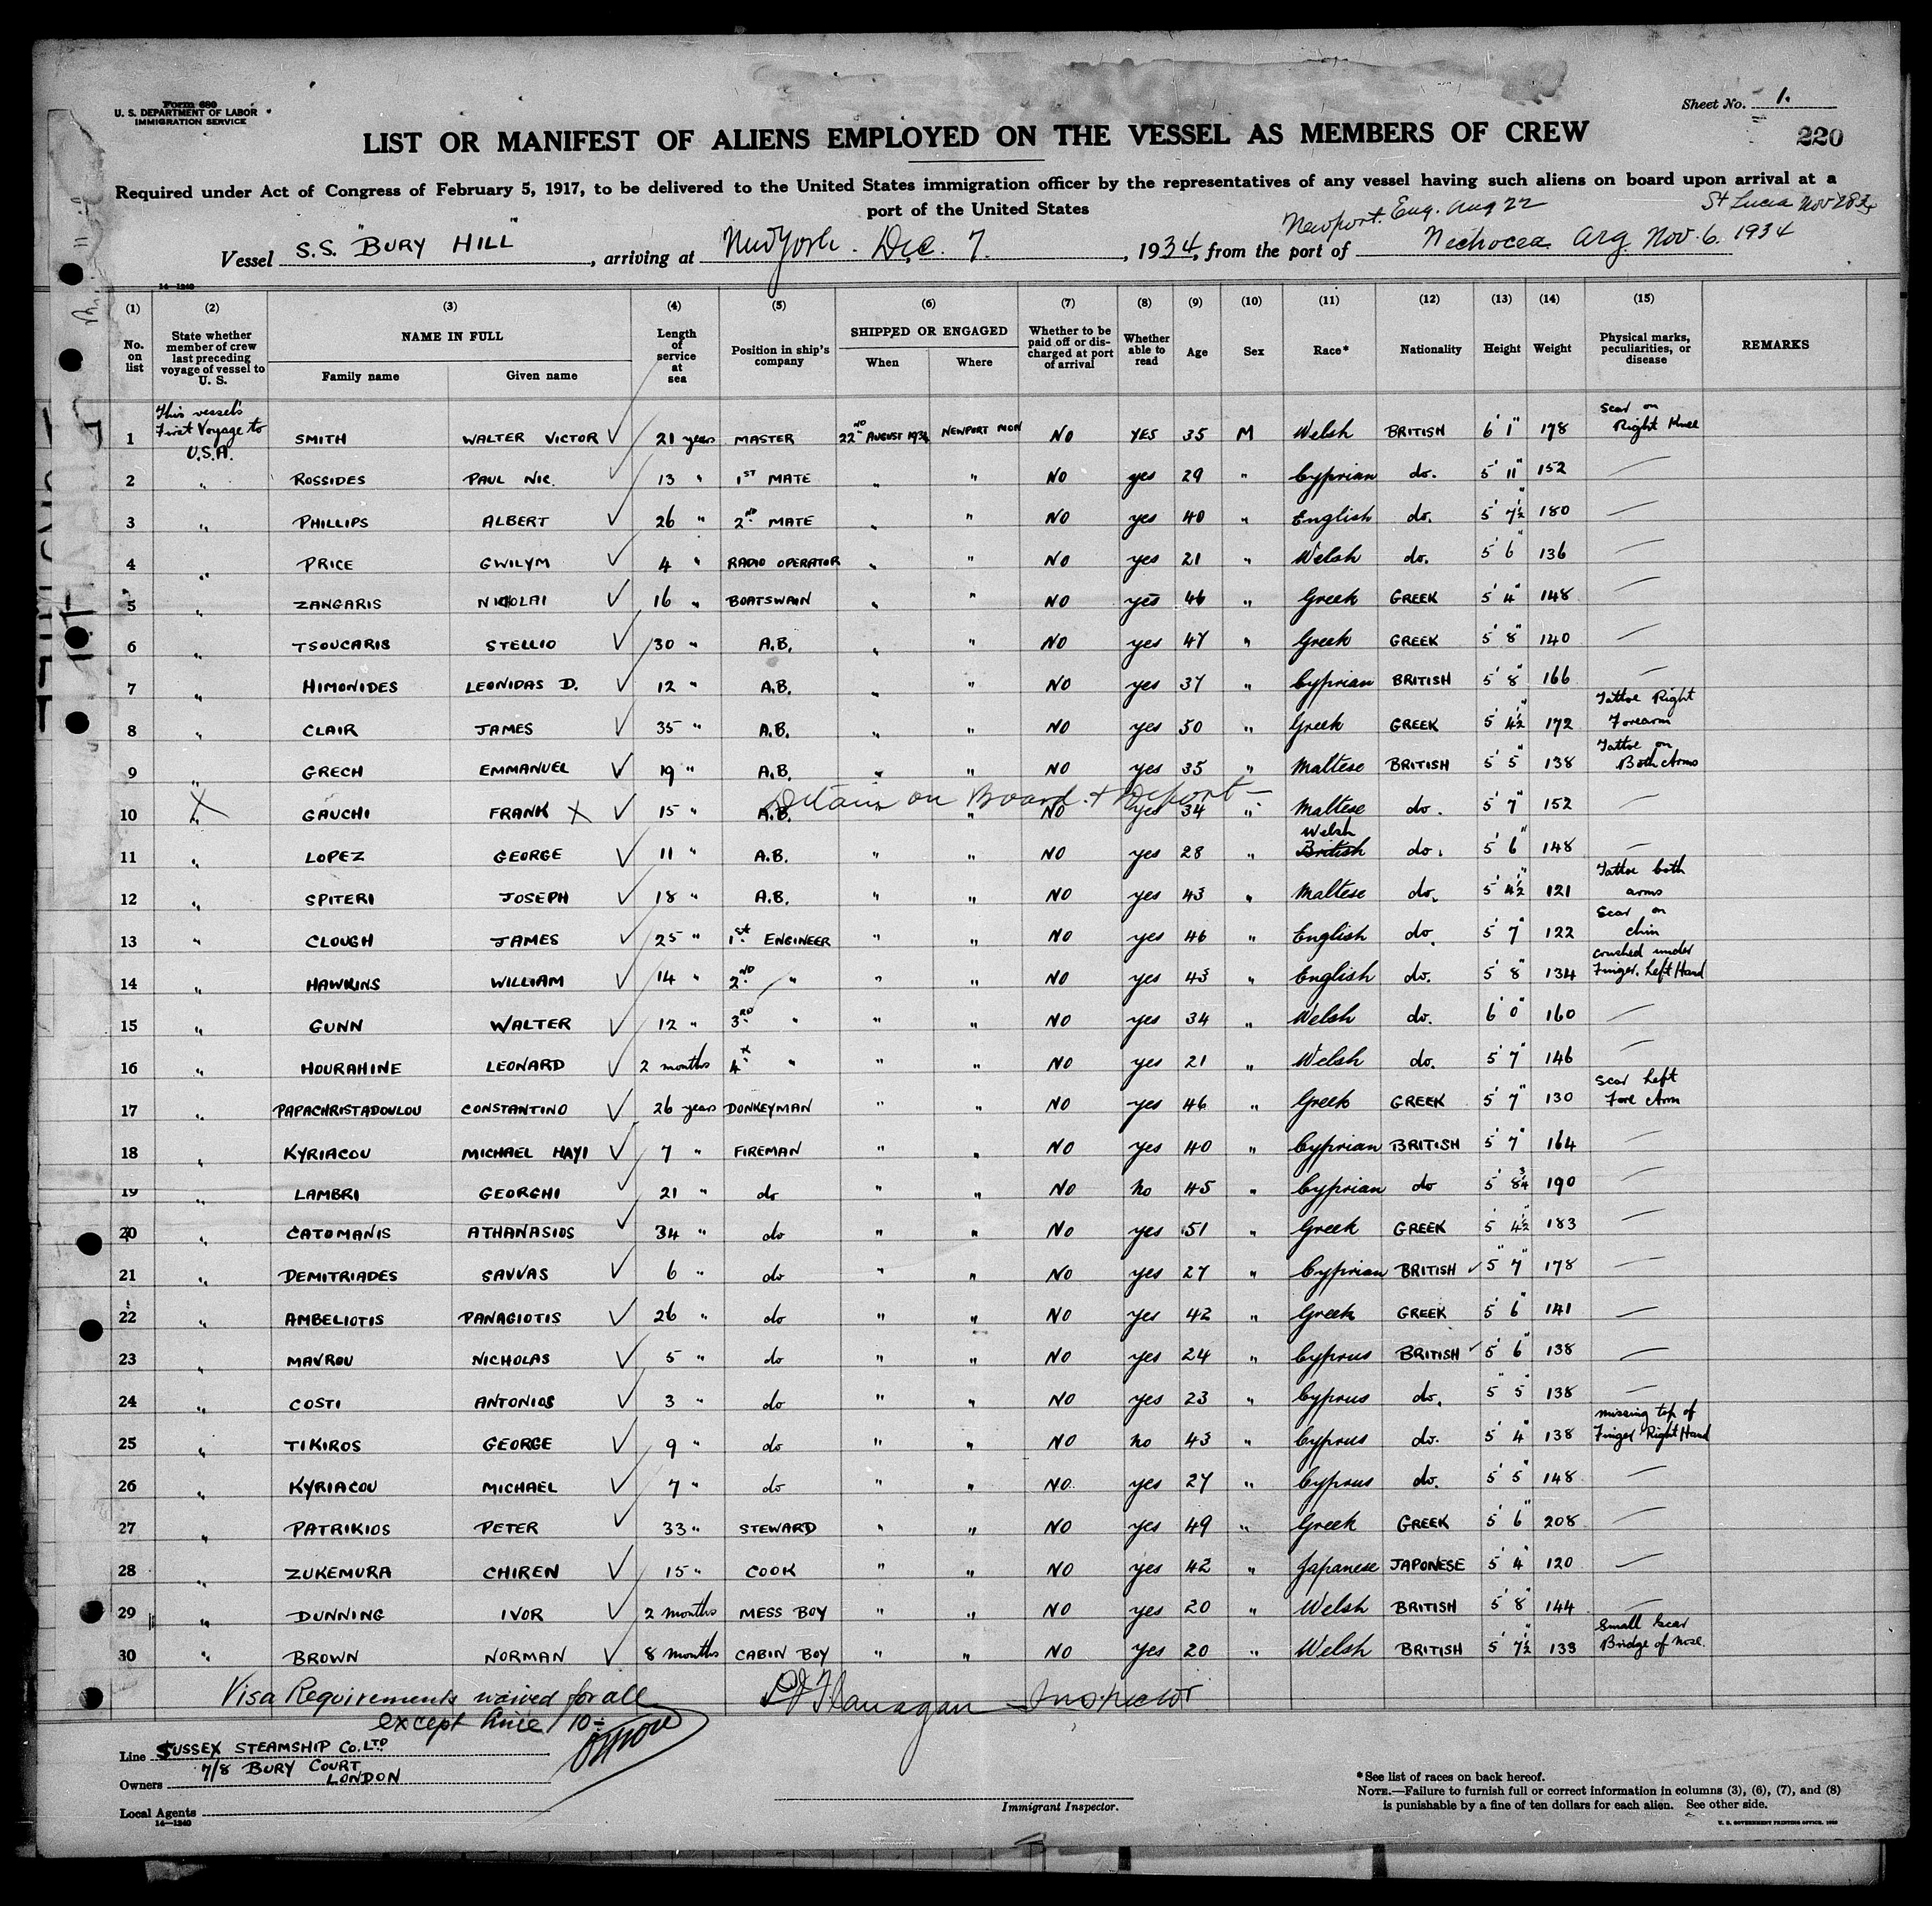 Form 680
U. S. DEPARTMENT OF LABOR
IMMIGRATION SERVICE
Sheet No. 1.
220
LIST OR MANIFEST OF ALIENS EMPLOYED ON THE VESSEL AS MEMBERS OF CREW
Required under Act of Congress of February 5, 1917, to be delivered to the United States immigration officer by the representatives of any vessel having such aliens on board upon arrival at a
port of the United States
Newport. Eng. Aug 22
St Lucia Nov 28
Vessel S.S. "BURY HILL", arriving at New York. Dec. 7., 1934, from the port of Nechocea Arg. Nov. 6. 1934
14—1240
(1) (2) (3) (4) (5) (6) (7) (8) (9) (10) (11) (12) (13) (14) (15)
No. on list | State whether member of crew last preceding voyage of vessel to U. S. | NAME IN FULL Family name Given name | Length of service at sea | Position in ship's company | SHIPPED OR ENGAGED When Where | Whether to be paid off or discharged at port of arrival | Whether able to read | Age | Sex | Race* | Nationality | Height | Weight | Physical marks, peculiarities, or disease | REMARKS
1 This vessel's First Voyage to U.S.A. SMITH WALTER VICTOR ✓ 21 years MASTER 22ND AUGUST 1934 NEWPORT MON NO YES 35 M Welsh BRITISH 6' 1" 178 Scar on Right Knee
2 " ROSSIDES PAUL NIC. ✓ 13 " 1ST MATE " " NO yes 29 " Cyprian do. 5' 11" 152 —
3 " PHILLIPS ALBERT ✓ 26 " 2ND MATE " " NO yes 40 " English do. 5' 7½" 180 —
4 " PRICE GWILYM ✓ 4 " RADIO OPERATOR " " NO yes 21 " Welsh do. 5' 6" 136 —
5 " ZANGARIS NICHOLAI ✓ 16 " BOATSWAIN " " NO yes 46 " Greek GREEK 5' 4" 148 —
6 " TSOUCARIS STELLIO ✓ 30 " A.B. " " NO yes 47 " Greek GREEK 5' 8" 140 —
7 " HIMONIDES LEONIDAS D. ✓ 12 " A.B. " " NO yes 37 " Cyprian BRITISH 5' 8" 166 —
8 " CLAIR JAMES ✓ 35 " A.B. " " NO yes 50 " Greek GREEK 5' 4½" 172 Tattoe Right Forearm
9 " GRECH EMMANUEL ✓ 19 " A.B. " " NO yes 35 " Maltese BRITISH 5' 5" 138 Tattoe on Both Arms
Detain on Board & Deport —
10 X " GAUCHI FRANK X ✓ 15 " A.B. " NO yes 34 " Maltese do. 5' 7" 152 —
11 " LOPEZ GEORGE ✓ 11 " A.B. " " NO yes 28 " Welsh British do. 5' 6" 148 —
12 " SPITERI JOSEPH ✓ 18 " A.B. " " NO yes 43 " Maltese do. 5' 4½" 121 Tattoe both arms
13 " CLOUGH JAMES ✓ 25 " 1st ENGINEER " " NO yes 46 " English do. 5' 7" 122 Scar on chin
14 " HAWKINS WILLIAM ✓ 14 " 2ND " " " NO yes 43 " English do. 5' 8" 134 crushed under Finger. Left Hand
15 " GUNN WALTER ✓ 12 " 3RD " " " NO yes 34 " Welsh do. 6' 0" 160 —
16 " HOURAHINE LEONARD ✓ 2 months 4 " " " NO yes 21 " Welsh do. 5' 7" 146 —
17 " PAPACHRISTADOULOU CONSTANTINO ✓ 26 years DONKEYMAN " " NO yes 46 " Greek GREEK 5' 7" 130 Scar Left Fore Arm
18 " KYRIACOU MICHAEL HAYI ✓ 7 " FIREMAN " " NO yes 40 " Cyprian BRITISH 5' 7" 164 —
19 " LAMBRI GEORGHI ✓ 21 " do " " NO no 45 " Cyprian do 5' 8¾ 190 —
20 " CATOMANIS ATHANASIOS ✓ 34 " do " " NO yes 51 " Greek GREEK 5' 4½" 183 —
21 " DEMITRIADES SAVVAS ✓ 6 " do " " NO yes 27 " Cyprian BRITISH ✓ 5" 7" 178 —
22 " AMBELIOTIS PANAGIOTIS ✓ 26 " do " " NO yes 42 " Greek GREEK 5' 6" 141 —
23 " MAVROU NICHOLAS ✓ 5 " do " " NO yes 24 " Cyprus BRITISH ✓ 5' 6" 138 —
24 " COSTI ANTONIOS ✓ 3 " do " " NO yes 23 " Cyprus do. 5" 5" 138 —
25 " TIKIROS GEORGE ✓ 9 " do " " NO no 43 " Cyprus do. 5' 4" 138 missing top of Finger Right Hand
26 " KYRIACOU MICHAEL ✓ 7 " do " " NO. yes 27 " Cyprus do. 5' 5" 148 —
27 " PATRIKIOS PETER ✓ 33 " STEWARD " " NO yes 49 " Greek GREEK 5' 6" 208 —
28 " ZUKEMURA CHIREN ✓ 15 " COOK " " NO yes 42 " Japanese JAPONESE 5' 4" 120 —
29 " DUNNING IVOR ✓ 2 months MESS BOY " " NO yes 20 " Welsh BRITISH 5' 8" 144 —
30 " BROWN NORMAN ✓ 8 months CABIN BOY " " NO yes 20 " Welsh BRITISH 5' 7½" 133 Small Scar Bridge of nose.
Visa Requirements waived for all
except line 10 —
Flanagan Inspector
Line SUSSEX STEAMSHIP Co. LTD
7/8 BURY COURT
Owners LONDON
Local Agents
14—1240
Immigrant Inspector.
*See list of races on back hereof.
NOTE.—Failure to furnish full or correct information in columns (3), (6), (7), and (8)
is punishable by a fine of ten dollars for each alien. See other side.
U. S. GOVERNMENT PRINTING OFFICE